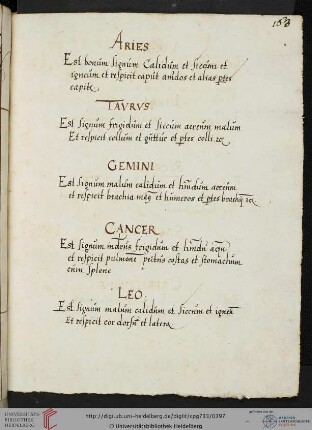 153
ARIES
Est bonum signum Calidum et siccum et
igneum et respicit caput anidos et alias ptes
capitẹ
TAVRVS
Est signum frigidum et siccum aereum malum
Et respicit collum et guttur et ptes colli
GEMINI
Est signum malum calidum et humdum aereum
et respicit brachia et humeros et ptes
CANCER
Est signum frigidum et
et respicit pulmone pectus costas et stomachum
cum splene
LEO
Est signum malum calidum et siccum et igneu
Et respicit cor dorsu et latera
UNIVERSITÄTS-
BIBLIOTHEK
HEIDELBERG
http://digi.ub.uni-heidelberg.de/diglit/cpg733/0397
© Universitätsbibliothek Heidelberg